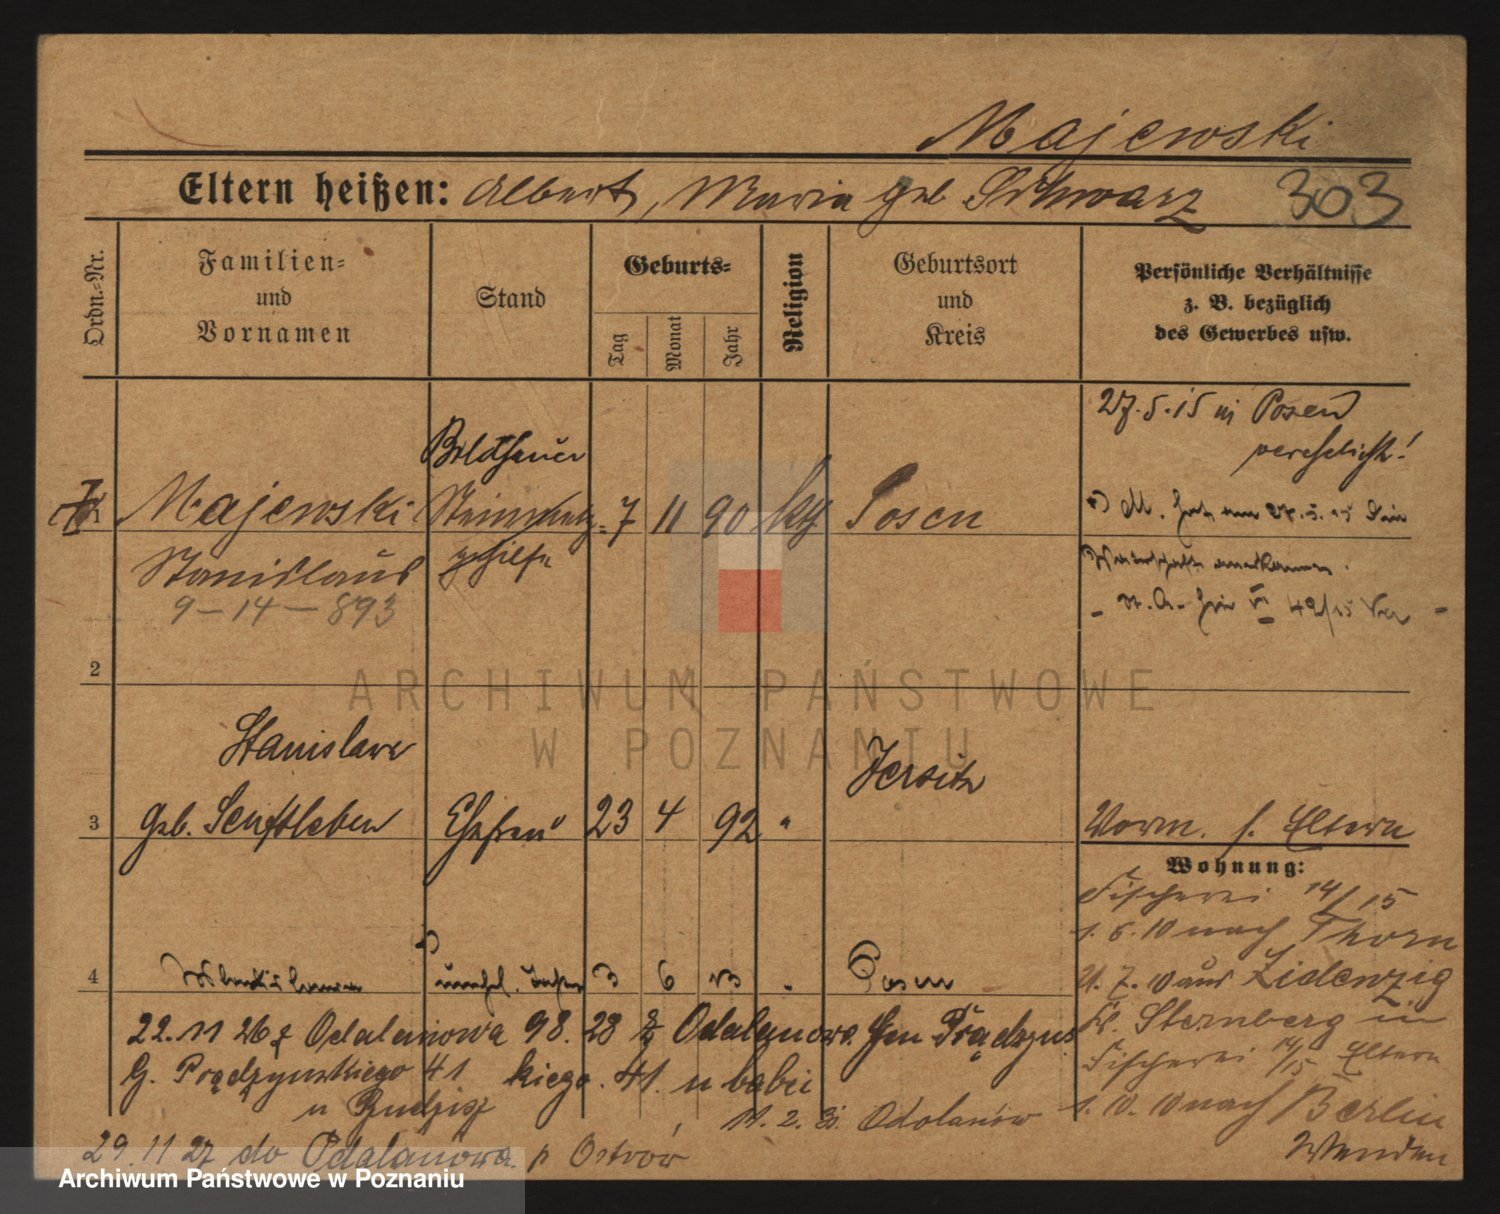 Majewski
Eltern heißen: Albert, Maria geb Schwarz 303
Ordn.-Nr.
Familien-
und
Vornamen
Stand
Geburts-
Tag
Monat
Jahr
Religion
Geburtsort
und
Kreis
Persönliche Verhältnisse
z. B. bezüglich
des Gewerbes usw.
27.5.15 in Posen
verehelicht!
Bildhauer
1 Majewski 7 11 90 kth Posen
M. hat am 27.5.15 die
Stanislaus gehilfe
Vaterschaft anerkannt.
9-14-893
2
Stanislawa Jersitz
3 geb. Senftleben Ehefrau 23 4 92 "
Vorm. s. Eltern
Wohnung:
Fischerei 14/15
1.6.10 nach Thorn
4 3 6 13 " Posen
U. 7. 10 aus Zidenzig
22.11 26 Odalanowa 98. 28 Odalanowa Gen Prądzyńs
Kr. Sternberg in
G. Prądzyńskiego 41 kiego. 41. u babci
Fischerei 14/15 Eltern
11. 2. Odolanów
1. 10. 10 nach Berlin
29. 11 27 do Odalanowa p Ostrów
ARCHIWUM PAŃSTWOWE
W POZNANIU
Archiwum Państwowe w Poznaniu